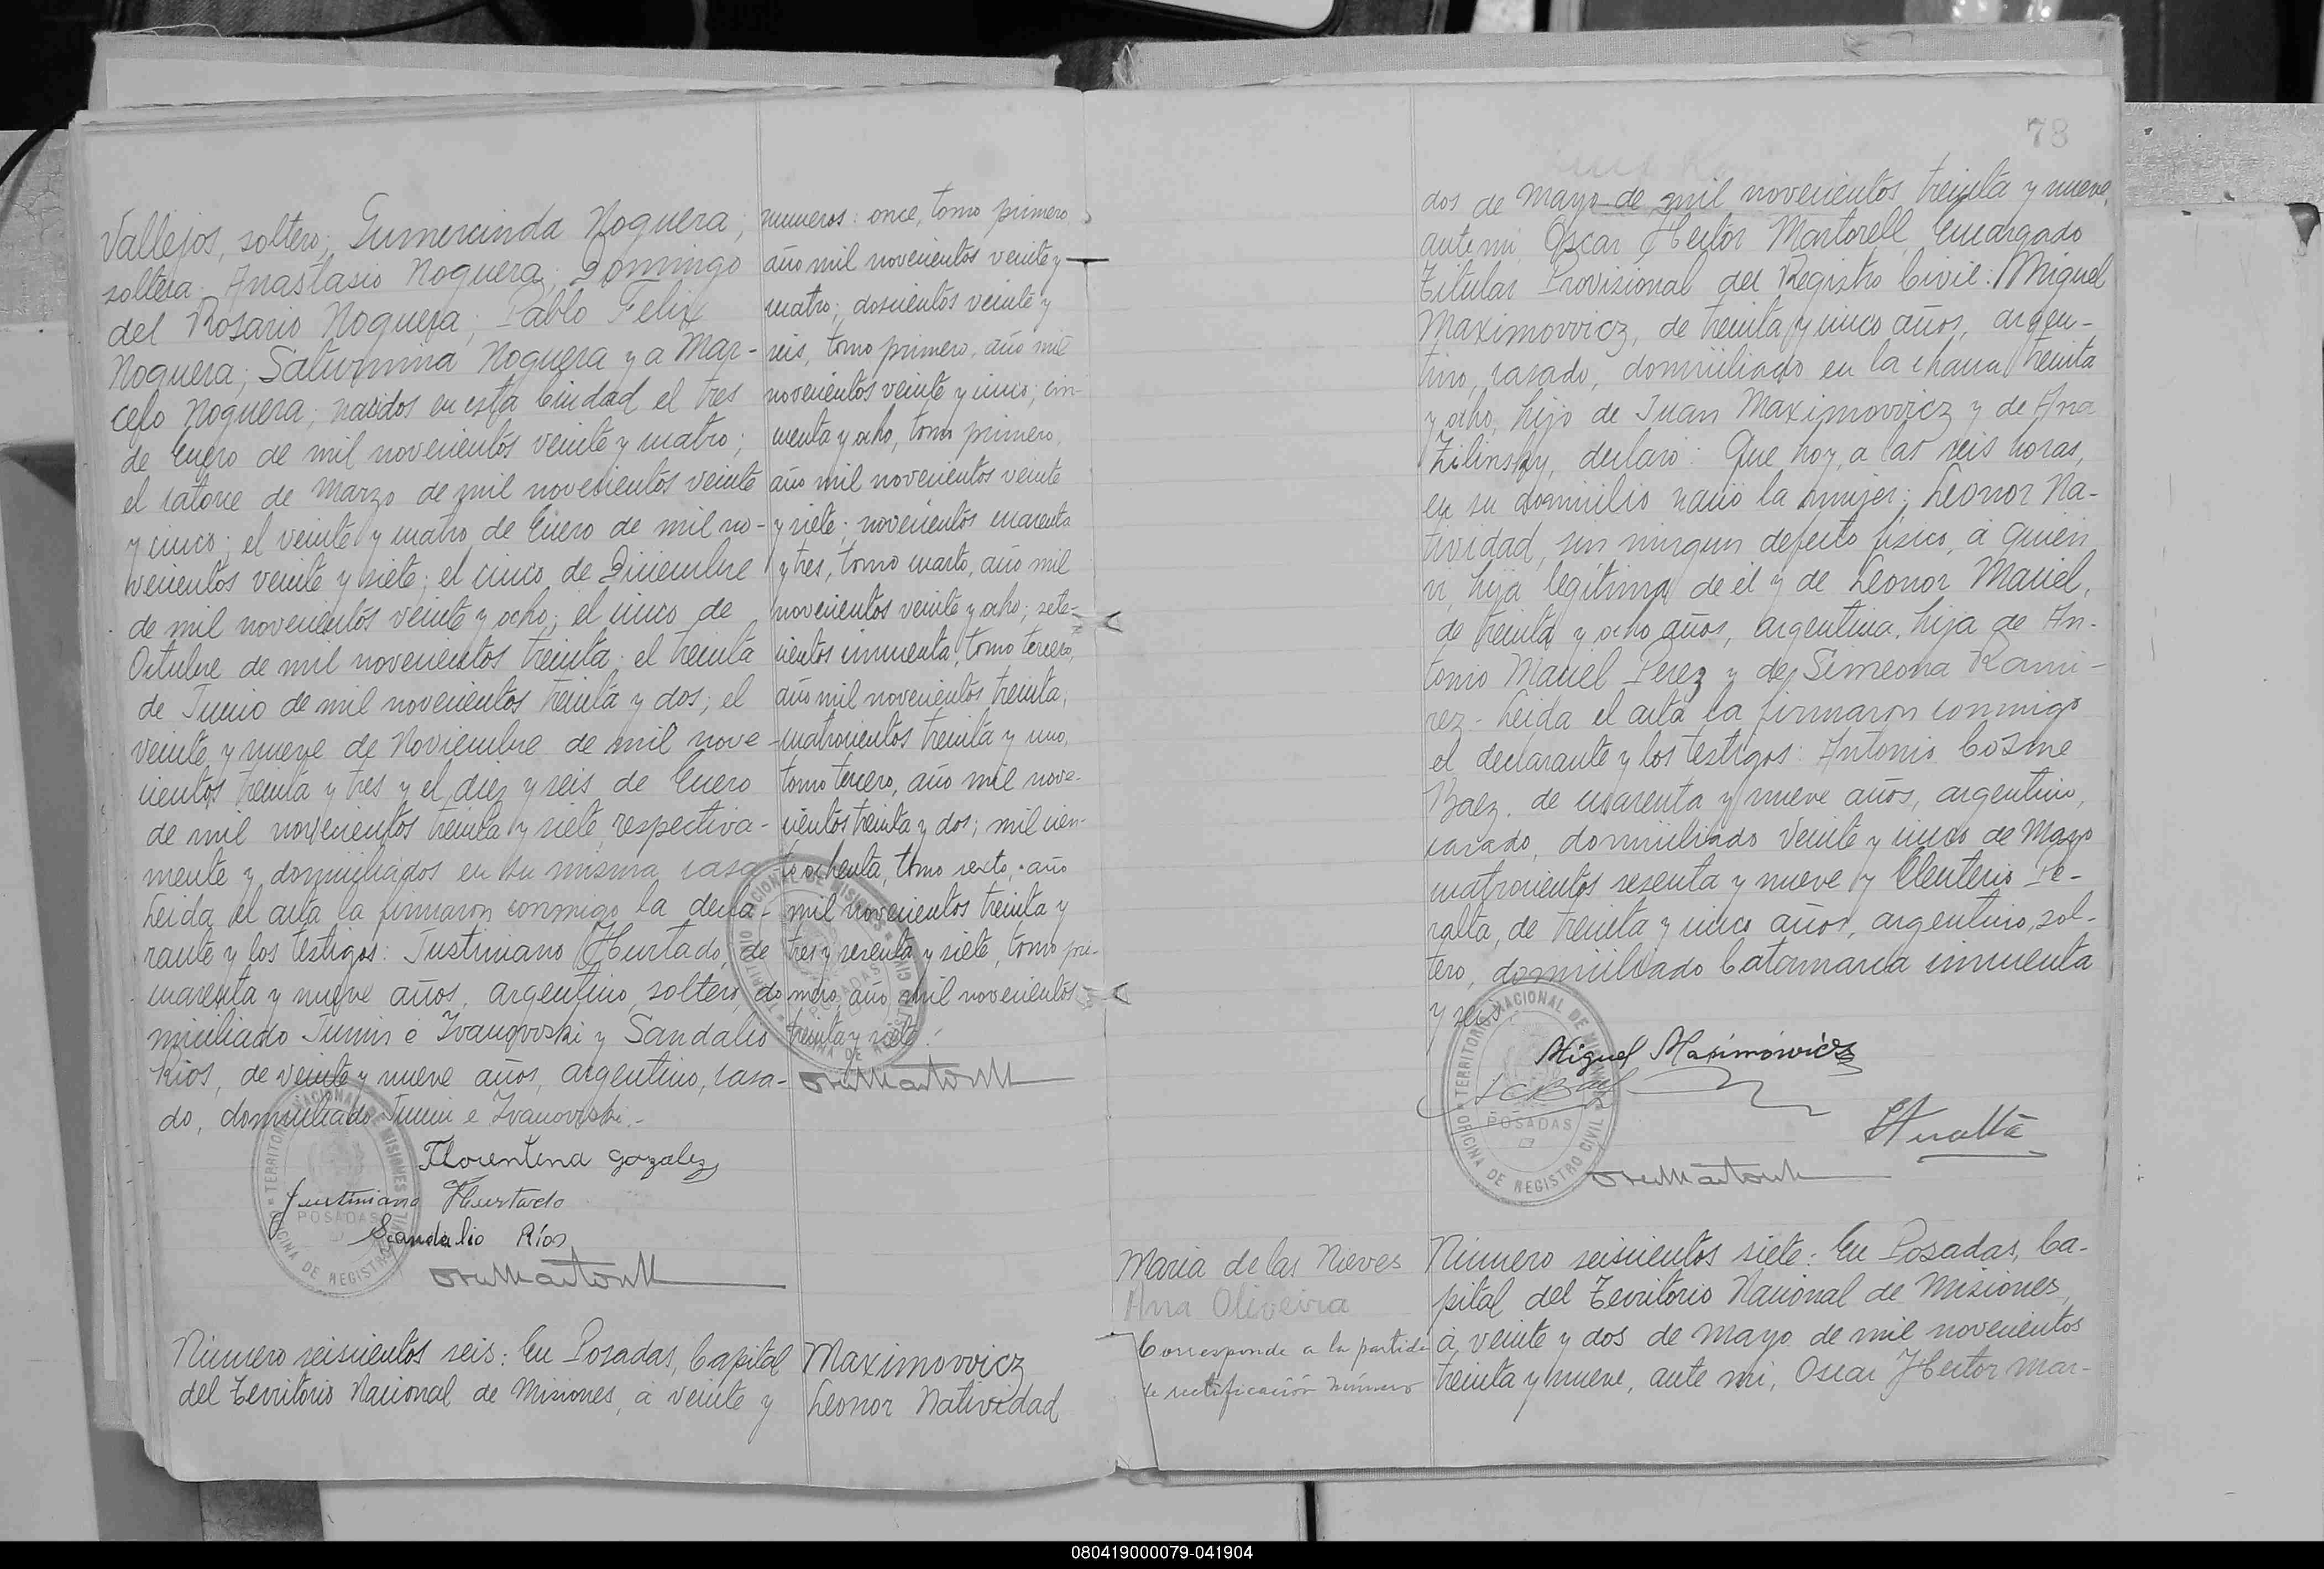 Vallejos, soltero; Gumercinda Noguera;
soltera. Anastasio Noguera; Domingo
del Rosario Noguera; Pablo Felix
Noguera; Saturnina Noguera y a Mar-
celo Noguera; nacidos en esta Ciudad el tres
de Enero de mil novecientos veinte y cuatro;
el catorce de Marzo de mil novecientos veinte
y cinco; el veinte y cuatro de Enero de mil no-
vecientos veinte y siete; el cinco de Diciembre
de mil novecientos veinte y ocho; el cinco de
Octubre de mil novecientos treinta; el treinta
de Junio de mil novecientos treinta y dos; el
veinte y nueve de Noviembre de mil nove-
cientos treinta y tres y el diez y seis de Enero
de mil novecientos treinta y siete, respectiva-
mente y domiciliados en su misma casa
Leida el acta la firmaron conmigo la decla-
rante y los testigos: Justiniano Hurtado, de
cuarenta y nueve años, argentino, soltero, do
miciliado Junin é Ivanovski y Sandalio
Rios, de veinte y nueve años, argentino, casa-
do, domiciliado Junin e Ivanovski.-
Florentena gozalez
Justiniano Hurtado
Sandalio Ríos
TERRITORIO NACIONAL DE MISIONES
POSADAS
OFICINA DE REGISTRO CIVIL
Número seiscientos seis: En Posadas, Capital
del Territorio Nacional de Misiones, á veinte y
numeros: once, tomo primero
año mil novecientos veinte y
cuatro; doscientos veinte y
seis, tomo primero, año mil
novecientos veinte y cinco; cin-
cuenta y ocho, tomo primero,
año mil novecientos veinte
y siete; novecientos cuarenta
y tres, tomo cuarto, año mil
novecientos veinte y ocho; sete-
cientos cincuenta, tomo tercero,
año mil novecientos treinta;
cuatrocientos treinta y uno,
tomo tercero, año mil nove-
cientos treinta y dos; mil cien-
to ochenta, tomo sexto, año
mil novecientos treinta y
tres y sesenta y siete, tomo pri-
mero, año mil novecientos
treinta y siete.
TERRITORIO NACIONAL DE MISIONES
POSADAS
OFICINA DE REGISTRO CIVIL
Maximovvicz
Leonor Natividad
78
dos de Mayo de mil novecientos treinta y nueve,
ante mi, Oscar Hector Martorell, Encargado
Titular Provisional del Registro Civil: Miguel
Maximovvicz, de treinta y cinco años, argen-
tino, casado, domiciliado en la chacra treinta
y ocho, hijo de Juan Maximovvicz y de Ana
Zilinsky, declaró: Que hoy, a las seis horas,
en su domicilio nació la mujer: Leonor Na-
tividad, sin ningun defecto fisico, á quien
vi, hija legítima de él y de Leonor Maciel,
de treinta y ocho años, argentina, hija de An-
tonio Maciel Perez y de Simeona Rami-
rez - Leida el acta la firmaron conmigo
el declarante y los testigos: Antonio Cosme
Baez, de cuarenta y nueve años, argentino,
casado, domiciliado Veinte y cinco de Mayo
cuatrocientos sesenta y nueve y Eleuterio Pe-
ralta, de treinta y cinco años, argentino, sol-
tero, domiciliado Catamarca cincuenta
y seis.
Miguel Maximowicz
TERRITORIO NACIONAL DE MISIONES
POSADAS
OFICINA DE REGISTRO CIVIL
Maria de las Nieves
Ana Oliveira
Corresponde a la partida
de rectificación número
Número seiscientos siete: En Posadas, Ca-
pital del Territorio Nacional de Misiones,
á veinte y dos de Mayo de mil novecientos
treinta y nueve, ante mi, Oscar Hector Mar-
080419000079-041904